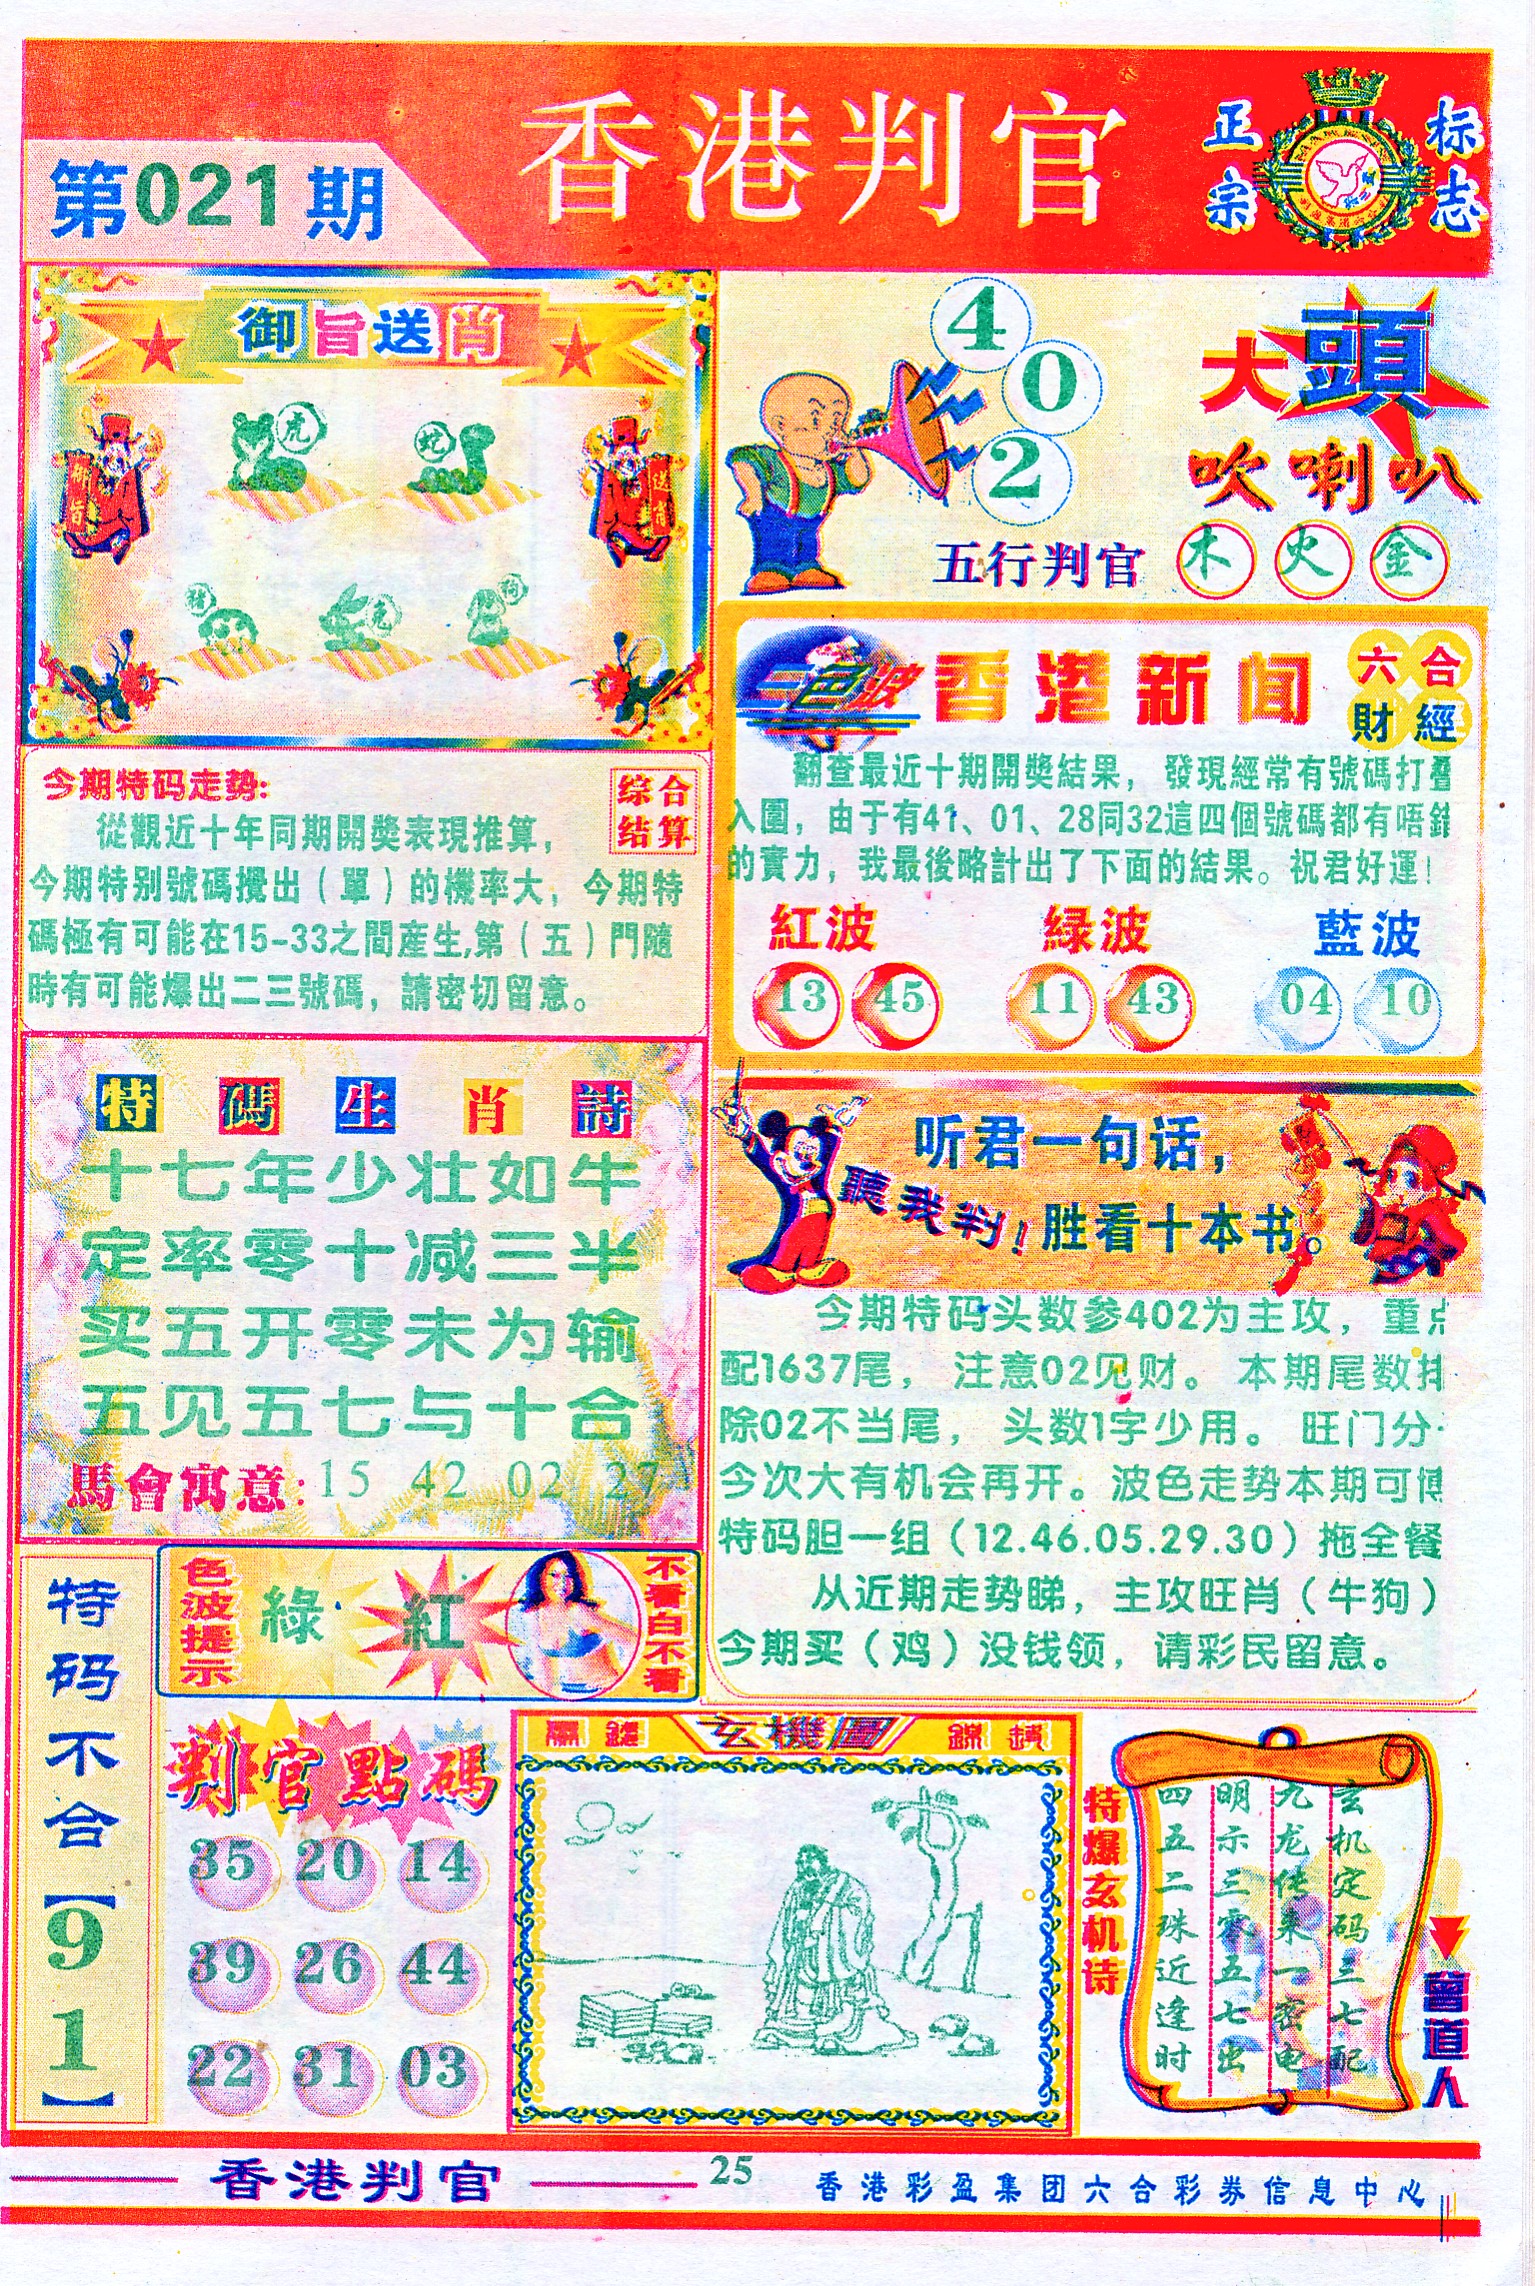 香港判官
正宗
标志
第021期
御旨送肖
虎
蛇
御旨
送肖
猪
兔
狗
4
0
2
大頭
吹喇叭
五行判官
木 火 金
今期特码走势:
综合
结算
從觀近十年同期開獎表現推算,
今期特别號碼攪出(單)的機率大, 今期特
碼極有可能在15-33之間產生,第(五)門隨
時有可能爆出二三號碼, 請密切留意。
三色波
香港新闻
六合
財經
翻查最近十期開獎結果, 發現經常有號碼打叠
入圍, 由于有41、01、28同32這四個號碼都有唔錯
的實力, 我最後略計出了下面的結果。祝君好運!
紅波 緑波 藍波
13 45 11 43 04 10
特碼生肖詩
十七年少壮如牛
定率零十减三半
买五开零未为输
五见五七与十合
馬會寓意: 15 42 02 27
听君一句话,
聽我判!
胜看十本书。
今期特码头数参402为主攻, 重点
配1637尾, 注意02见财。本期尾数排
除02不当尾, 头数1字少用。旺门分
今次大有机会再开。波色走势本期可博
特码胆一组(12.46.05.29.30)拖全餐
从近期走势睇, 主攻旺肖(牛狗)
今期买(鸡)没钱领, 请彩民留意。
特码不合【91】
色波提示
綠 紅
不看白不看
判官點碼
35 20 14
39 26 44
22 31 03
玄機圖
特爆玄机诗
玄机定码三七配
九龙传来一密电
明示三零五七出
四五二珠近逢时
曾道人
香港判官
25
香港彩盈集团六合彩券信息中心